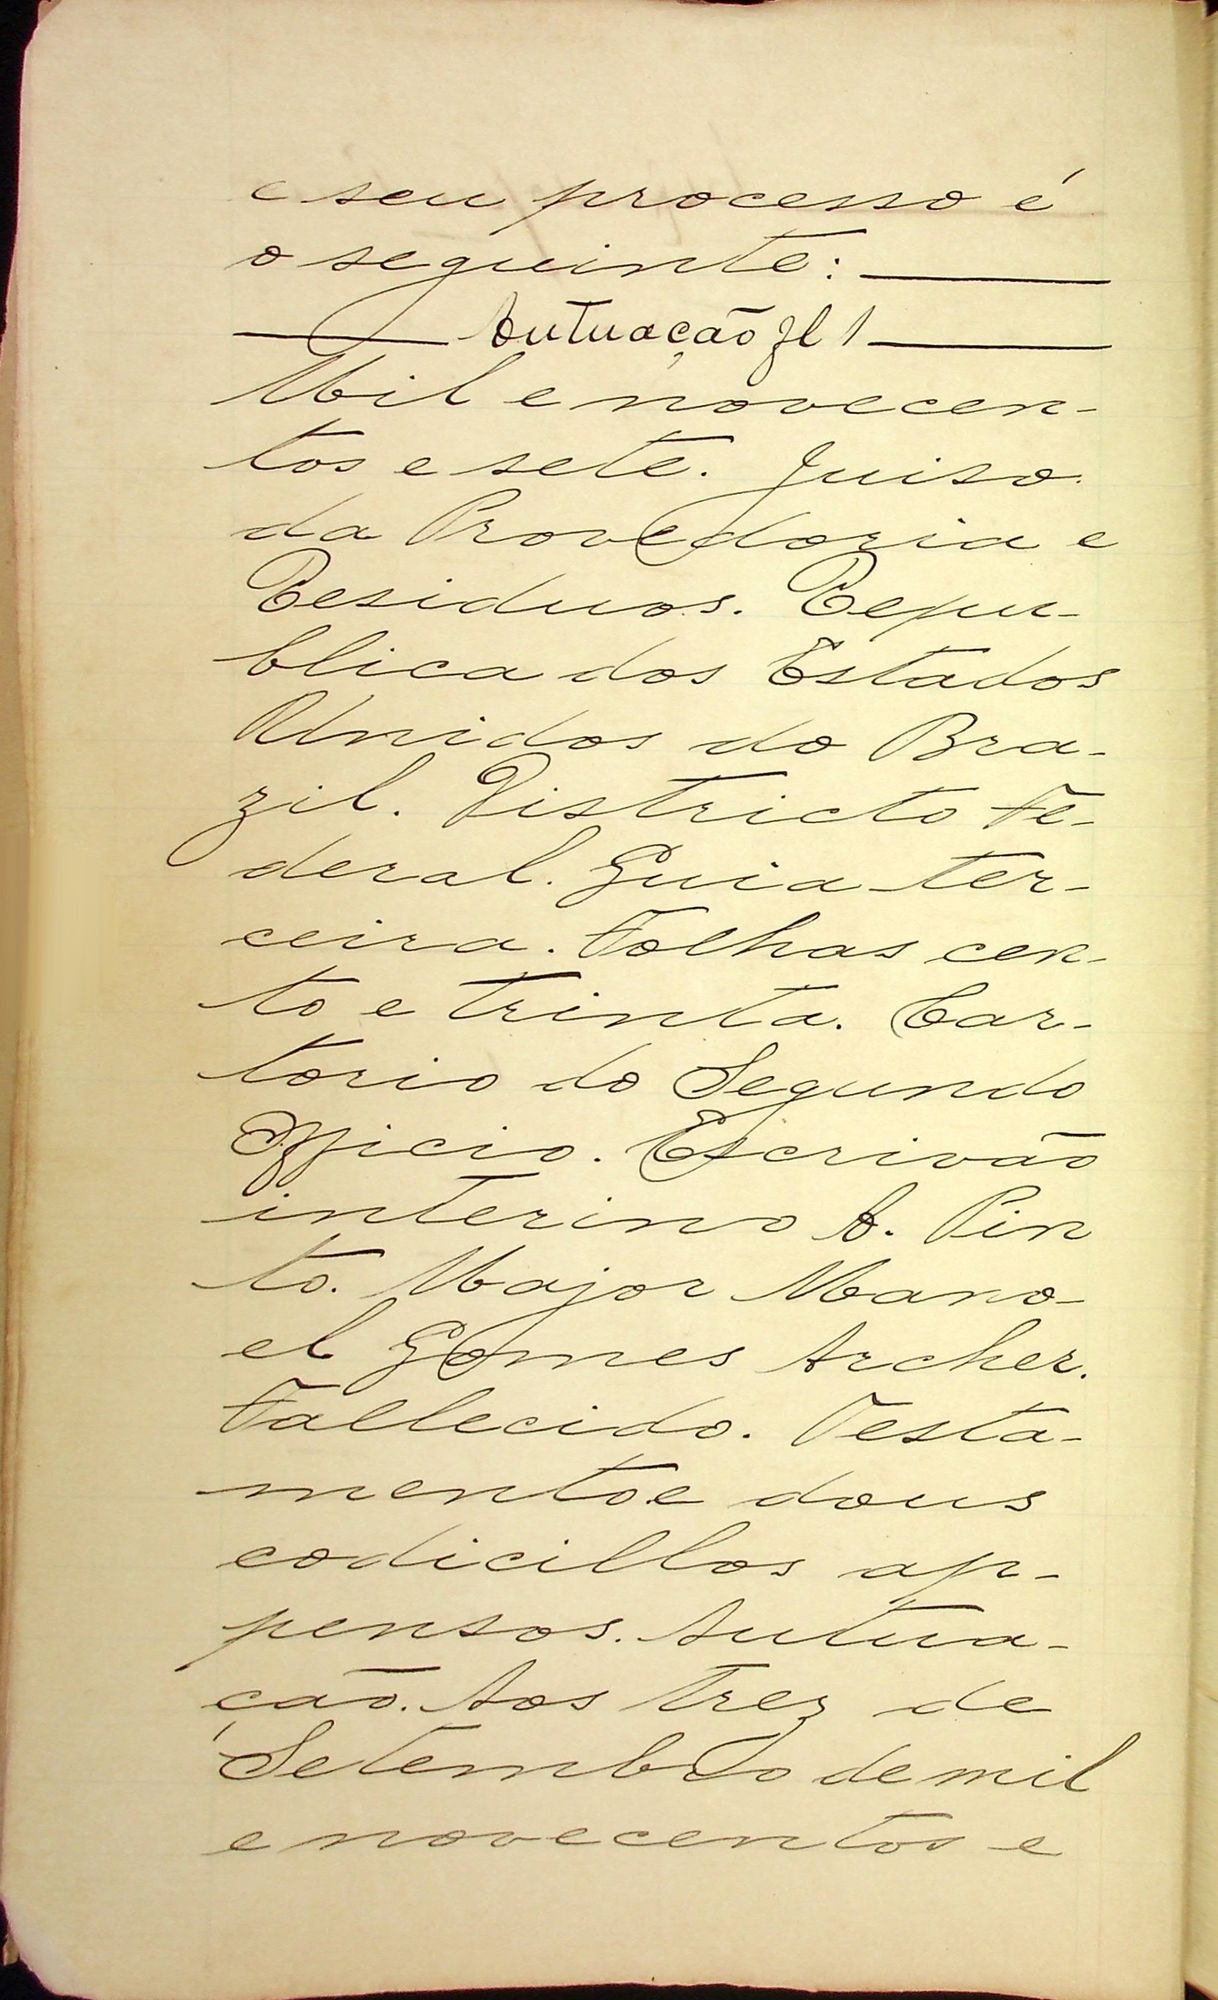 e seu processo é
o seguinte:
Autuação fl 1
Mil e novecen-
tos e sete. Juiso
da Provedoria e
Residuos. Repu-
blica dos Estados
Unidos do Bra-
zil. Districto Fe-
deral. Guia ter-
ceira. Folhas cen-
to e trinta. Car-
torio do Segundo
Officio. Escrivão
interino A. Pin
to. Major Mano-
el Gomes Archer.
Fallecido. Testa-
mento e dous
codicillos ap-
pensos. Autua-
ção. Aos trez de
Setembro de mil
e novecentos e